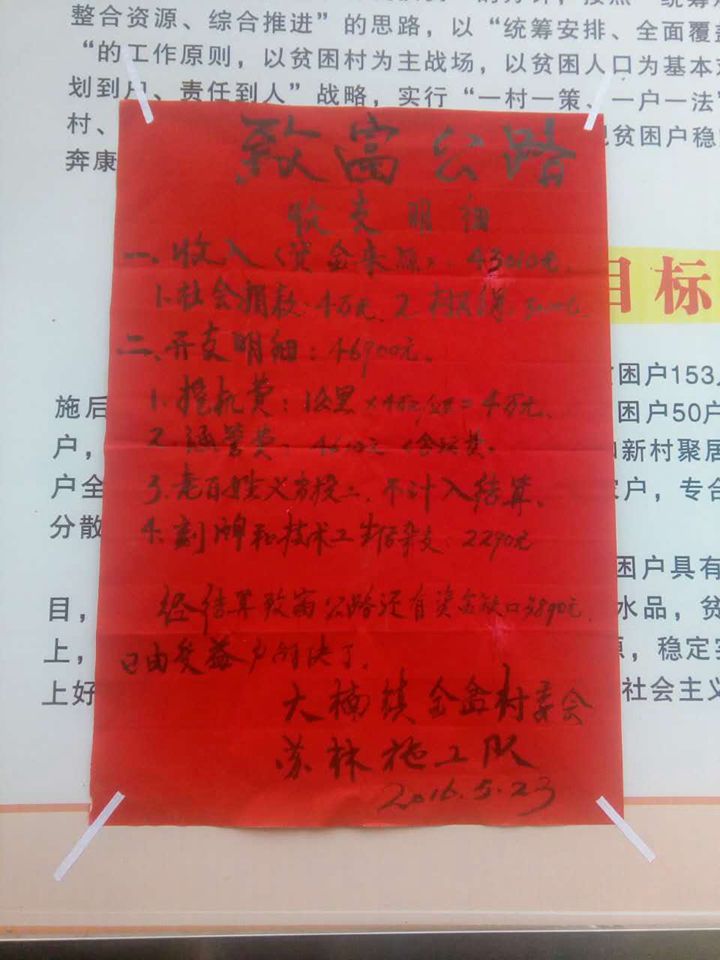 整合资源、综合推进”的思路，以“统筹安排、全面覆盖
”的工作原则，以贫困村为主战场，以贫困人口为基本
划到户、责任到人”战略，实行“一村一策、一户一法”
村、
贫困户稳
奔康
致富公路
收支明细
一、收入（资金来源）：43010元
1.社会捐款：4万元、2.
目标
二、开支明细：46900元。
困户153
1.挖机费：1公里×4万元/公里=4万元、
施后
困户50户
2.涵管费：4610元（含运费。
户，
和新村聚居
3.老百姓义务投工、不计入结算。
户全
农户，专合
分散
4.刻牌和技术工生活杂支：2290元
困户具有
经结算致富公路还有资金缺口3890元、
目，
水品，贫
已由受益户解决了。
上，
源，稳定实
上好
社会主义
大楠镇金盆村委会
苏林施工队
2016.5.23